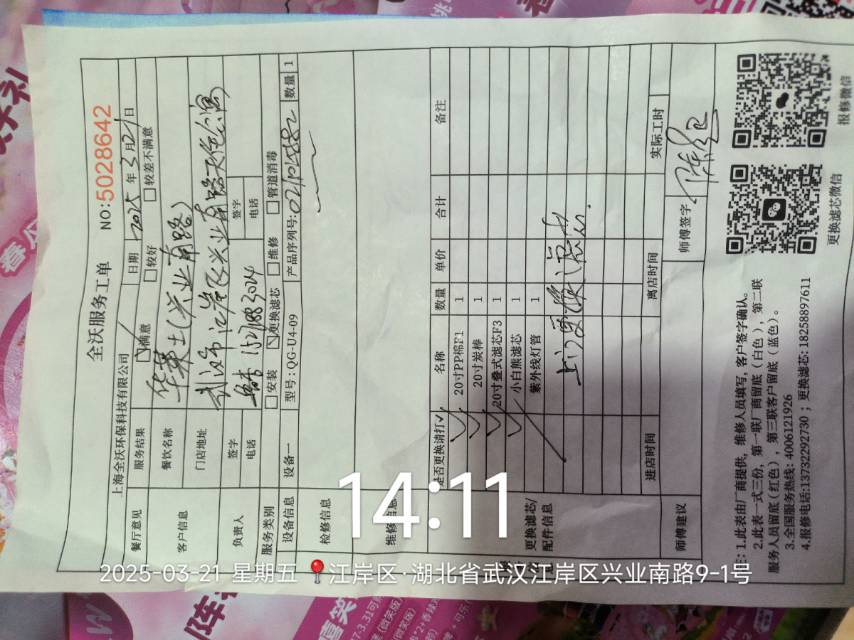 全沃服务工单
NO:5028642
上海全沃环保科技有限公司
日期 2025 年 3 月 21 日
餐厅意见 服务结果 满意 较好 较差不满意
客户信息 餐饮名称 华莱士(兴业南路)
门店地址 武汉市江岸区兴业南路
负责人 签字 签字
电话 电话
服务类别 安装 更换滤芯 维修 管道消毒
设备信息 设备一 型号:QG-U4-09 产品序列号: 数量 1
检修信息
更换滤芯/配件信息 是否更换请打✓ 名称 数量 单价 合计 备注
✓ 20寸PP棉F1 1
✓ 20寸炭棒 1
✓ 20寸叠式滤芯F3 1
✓ 小白熊滤芯 1
紫外线灯管 1
上门更换滤芯
师傅建议 进店时间 离店时间 实际工时
师傅签字
注:1.此表由厂商提供,维修人员填写,客户签字确认。
2.此表一式三份,第一联厂商留底(白色),第二联
服务人员留底(红色),第三联客户留底(蓝色)。
3.全国服务热线:4006121926
4.报修电话:13732292730;更换滤芯:18258897611
更换滤芯微信
报修微信
14:11
2025-03-21 星期五 江岸区·湖北省武汉江岸区兴业南路9-1号